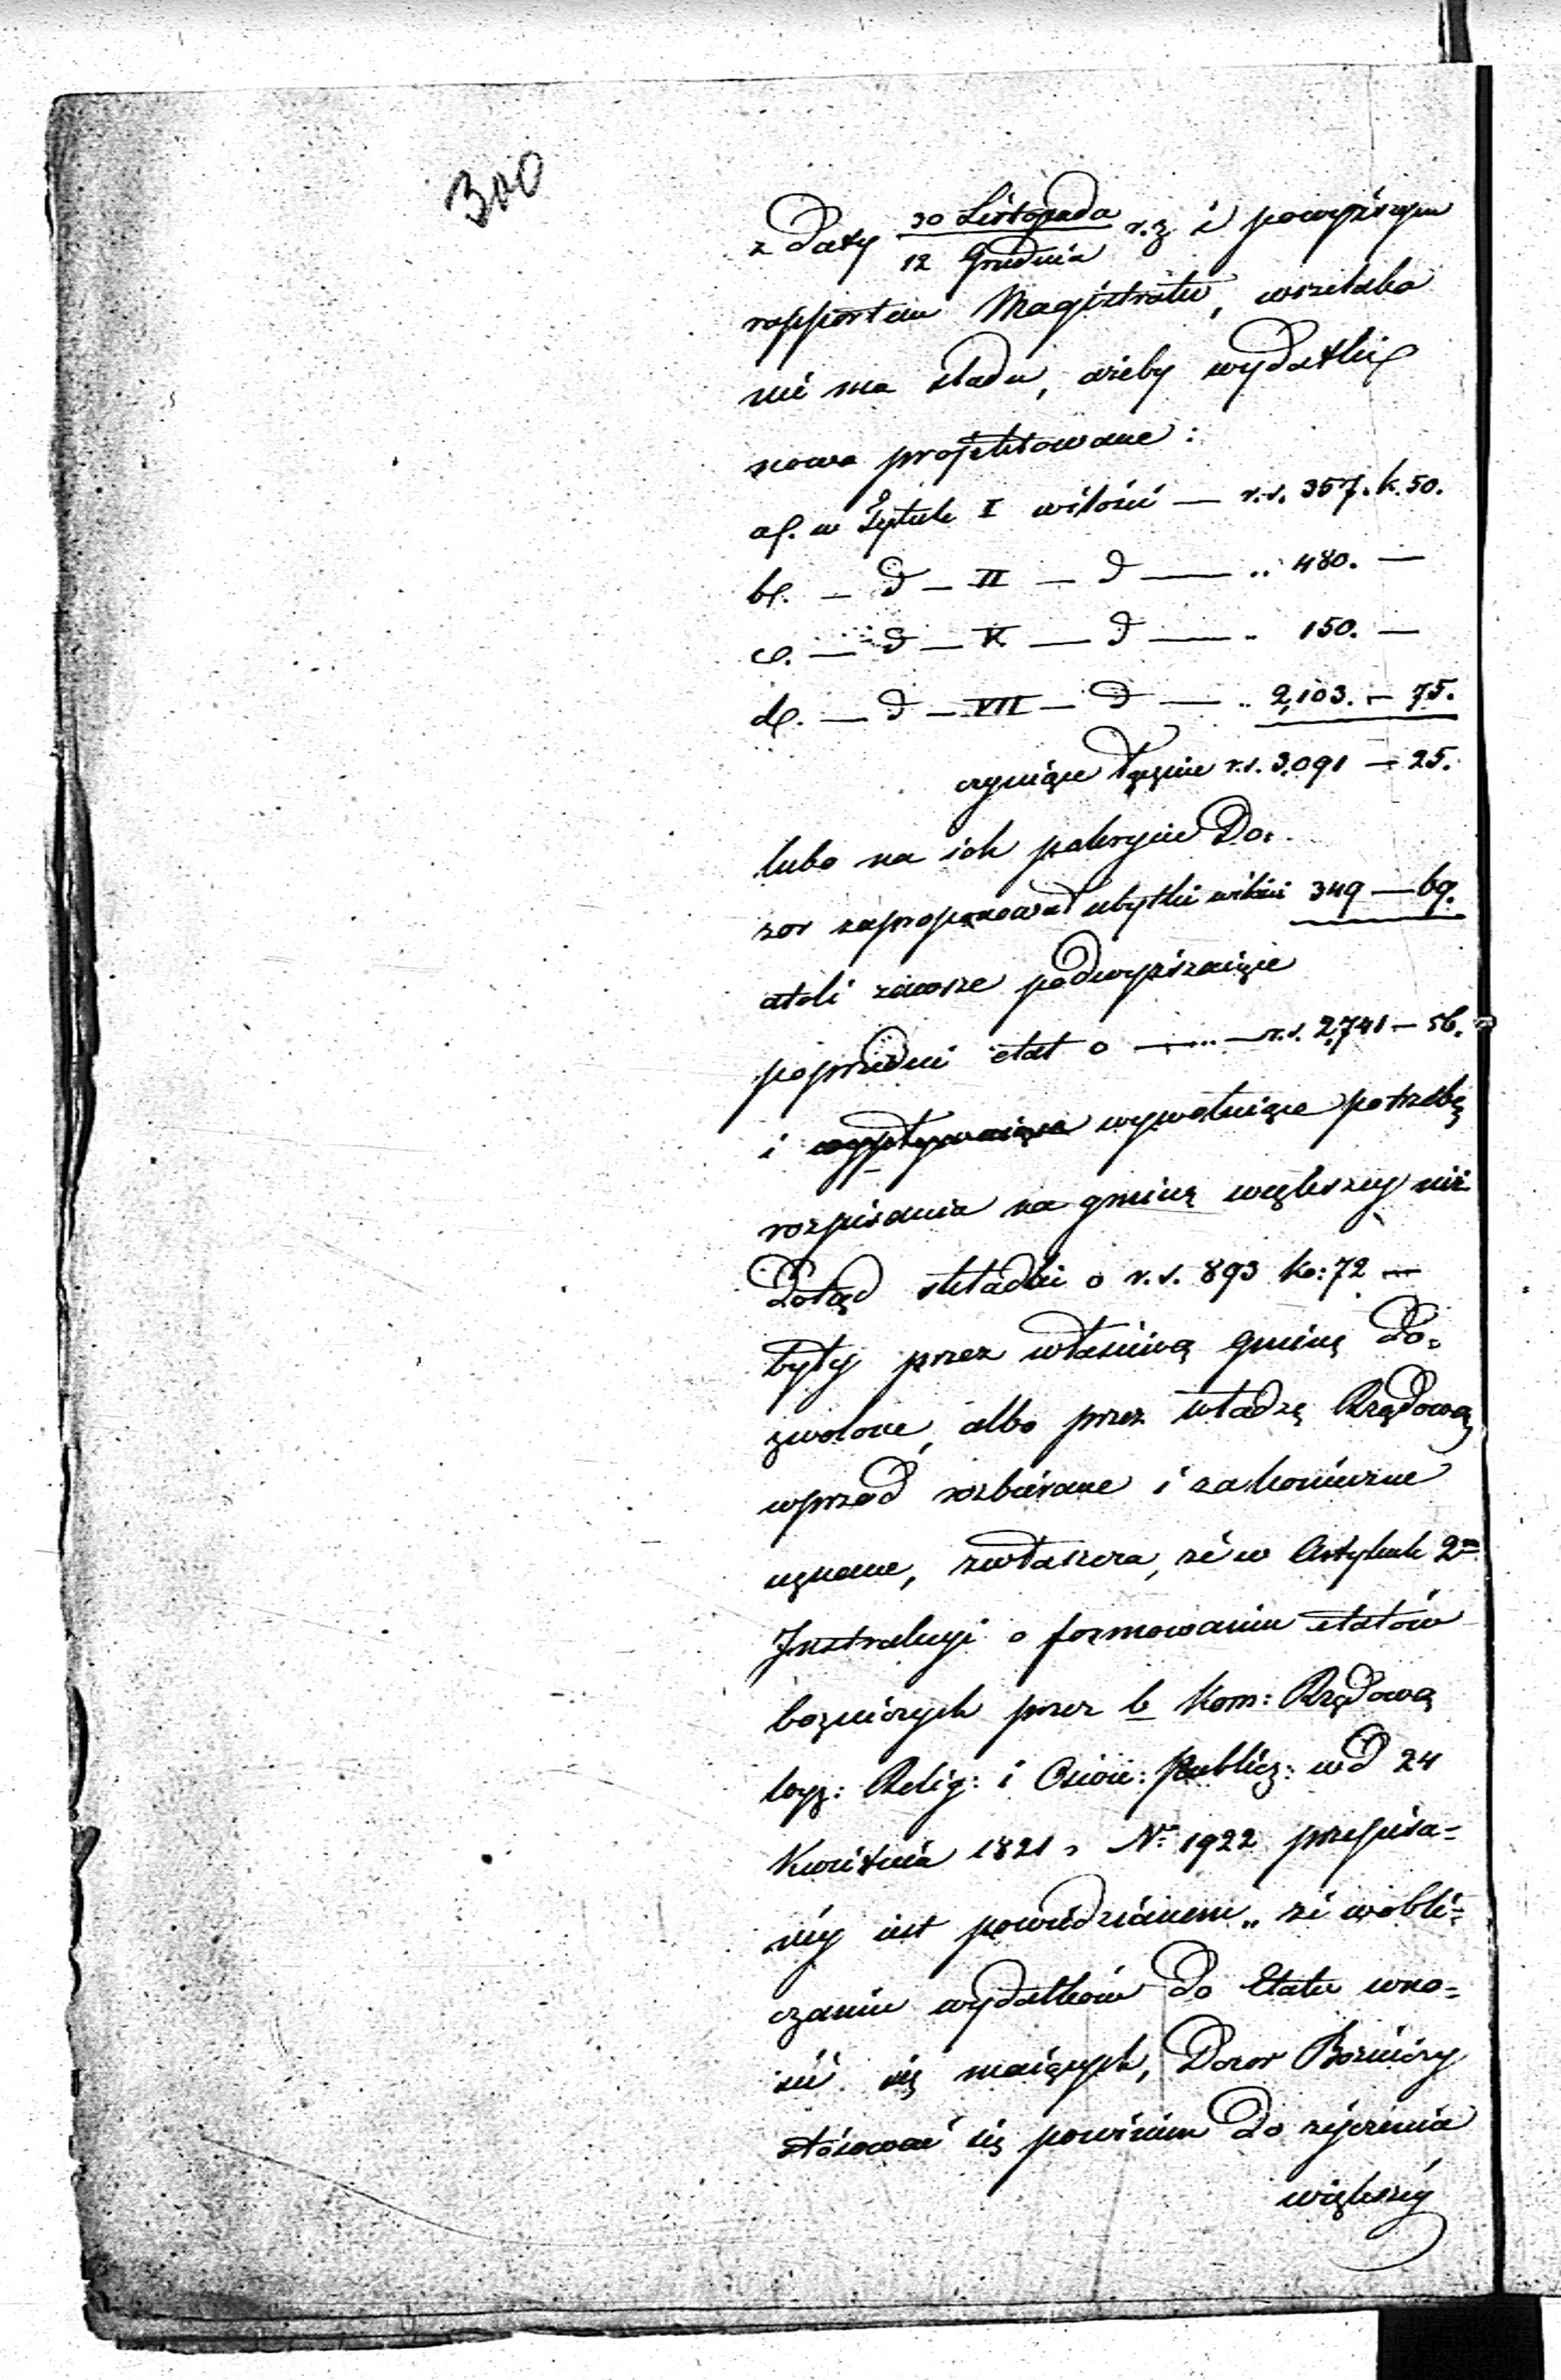 300
z daty 30 Listopada / 12 Grudnia r. z. i powyższym
rapportem Magistratu, wszelako
nié ma śladu, ażeby wydatki
nowo projektowane:
a/. w Tytule I w ilości — r.s. 357. k. 50.
b/. — d — II — d — „ 480. —
c/. — d — V — d — „ 150. —
d/. — d — VII — d — „ 2,103. — 75.
czyniące łącznie r.s. 3,091 — 25.
lubo na ich pokrycie Do=
zor zaproponował ubytki w ilości 349 — 69.
atoli zawsze podwyższaiące
poprzedni etat o — r.s. 2,741 — 56.
i wypływaiące wywołuiące potrzebę
rozpisania na gminę większey niż
dotąd składki o r.s. 893 ko: 72 —
były przez właściwą gminę do=
zwolone, albo przez władzę Rządową
wprzód rozbierane i za konieczne
uznane, zwłaszcza, że w Artykule 2m
Instrukcyi o formowaniu etatów
bożniczych przez b. Kom: Rządową
Wyz: Relig: i Oświe: Publicz: w d 24
Kwietnia 1821 r. No 1922 przepisa=
néy iest powiedzianem „ że w obli=
czaniu wydatków do Etatu wno=
sić się maiących, Dozor Bożniczy
stósować się powinien do życzenia
większéy